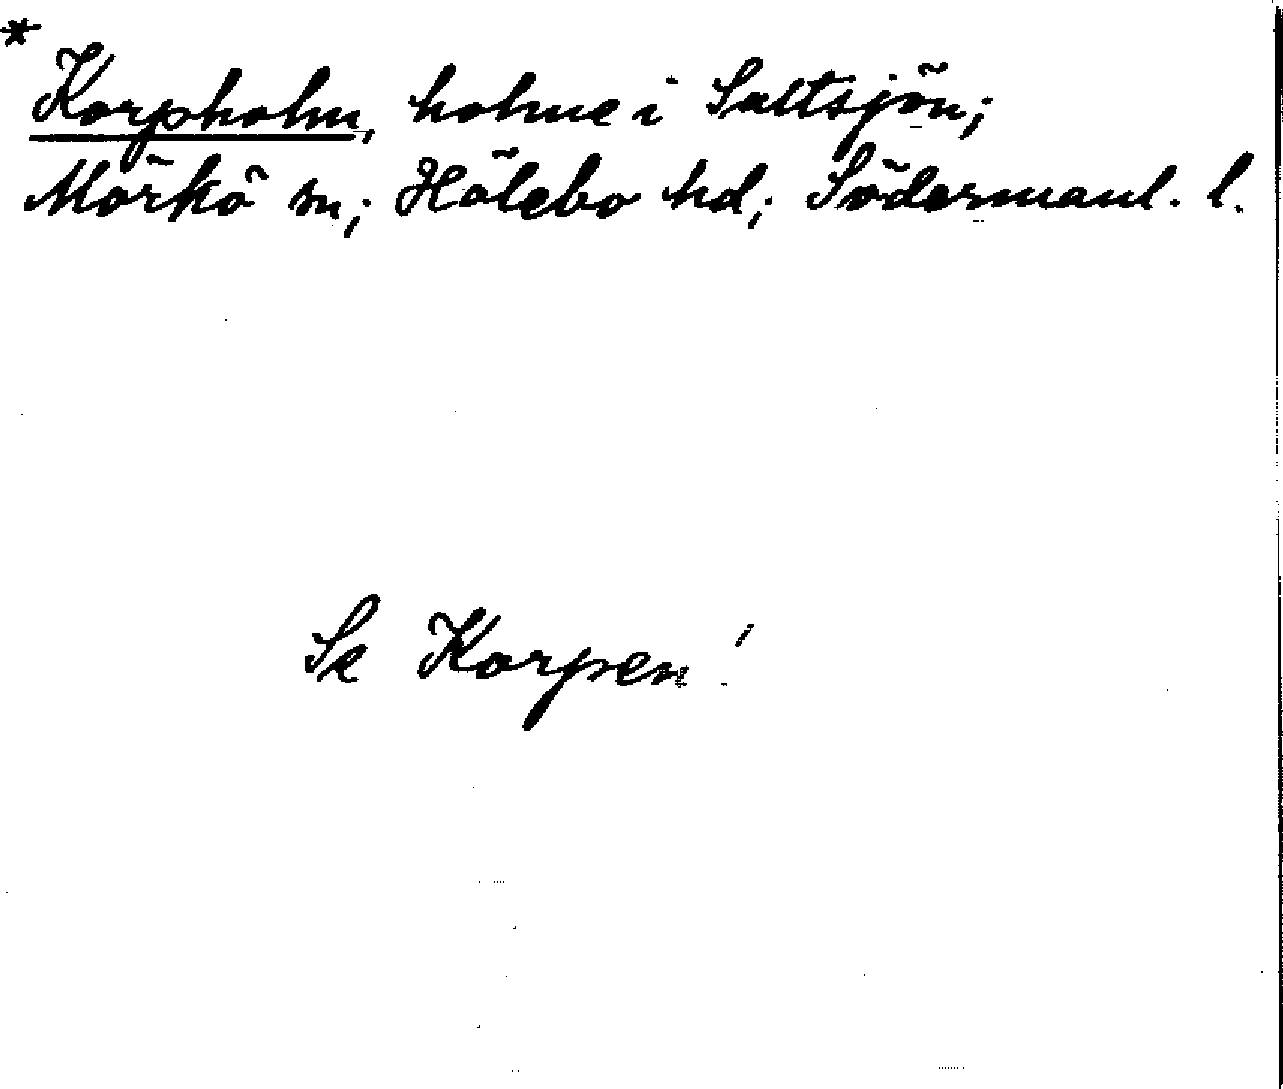 * Korpholm, holme i Saltsjön;
Mörkö sn; Hölebo hd; Södermanl. l.
Se Korpen!